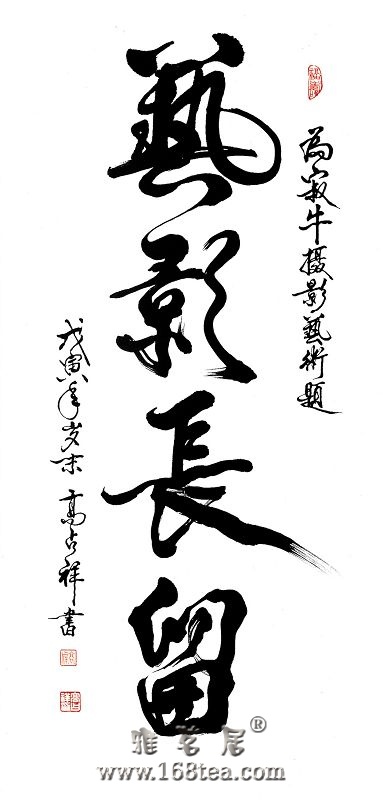 為寂牛摄影藝術題
藝影長留
戊寅年岁末 高占祥書
雅茗居®
www.168tea.com